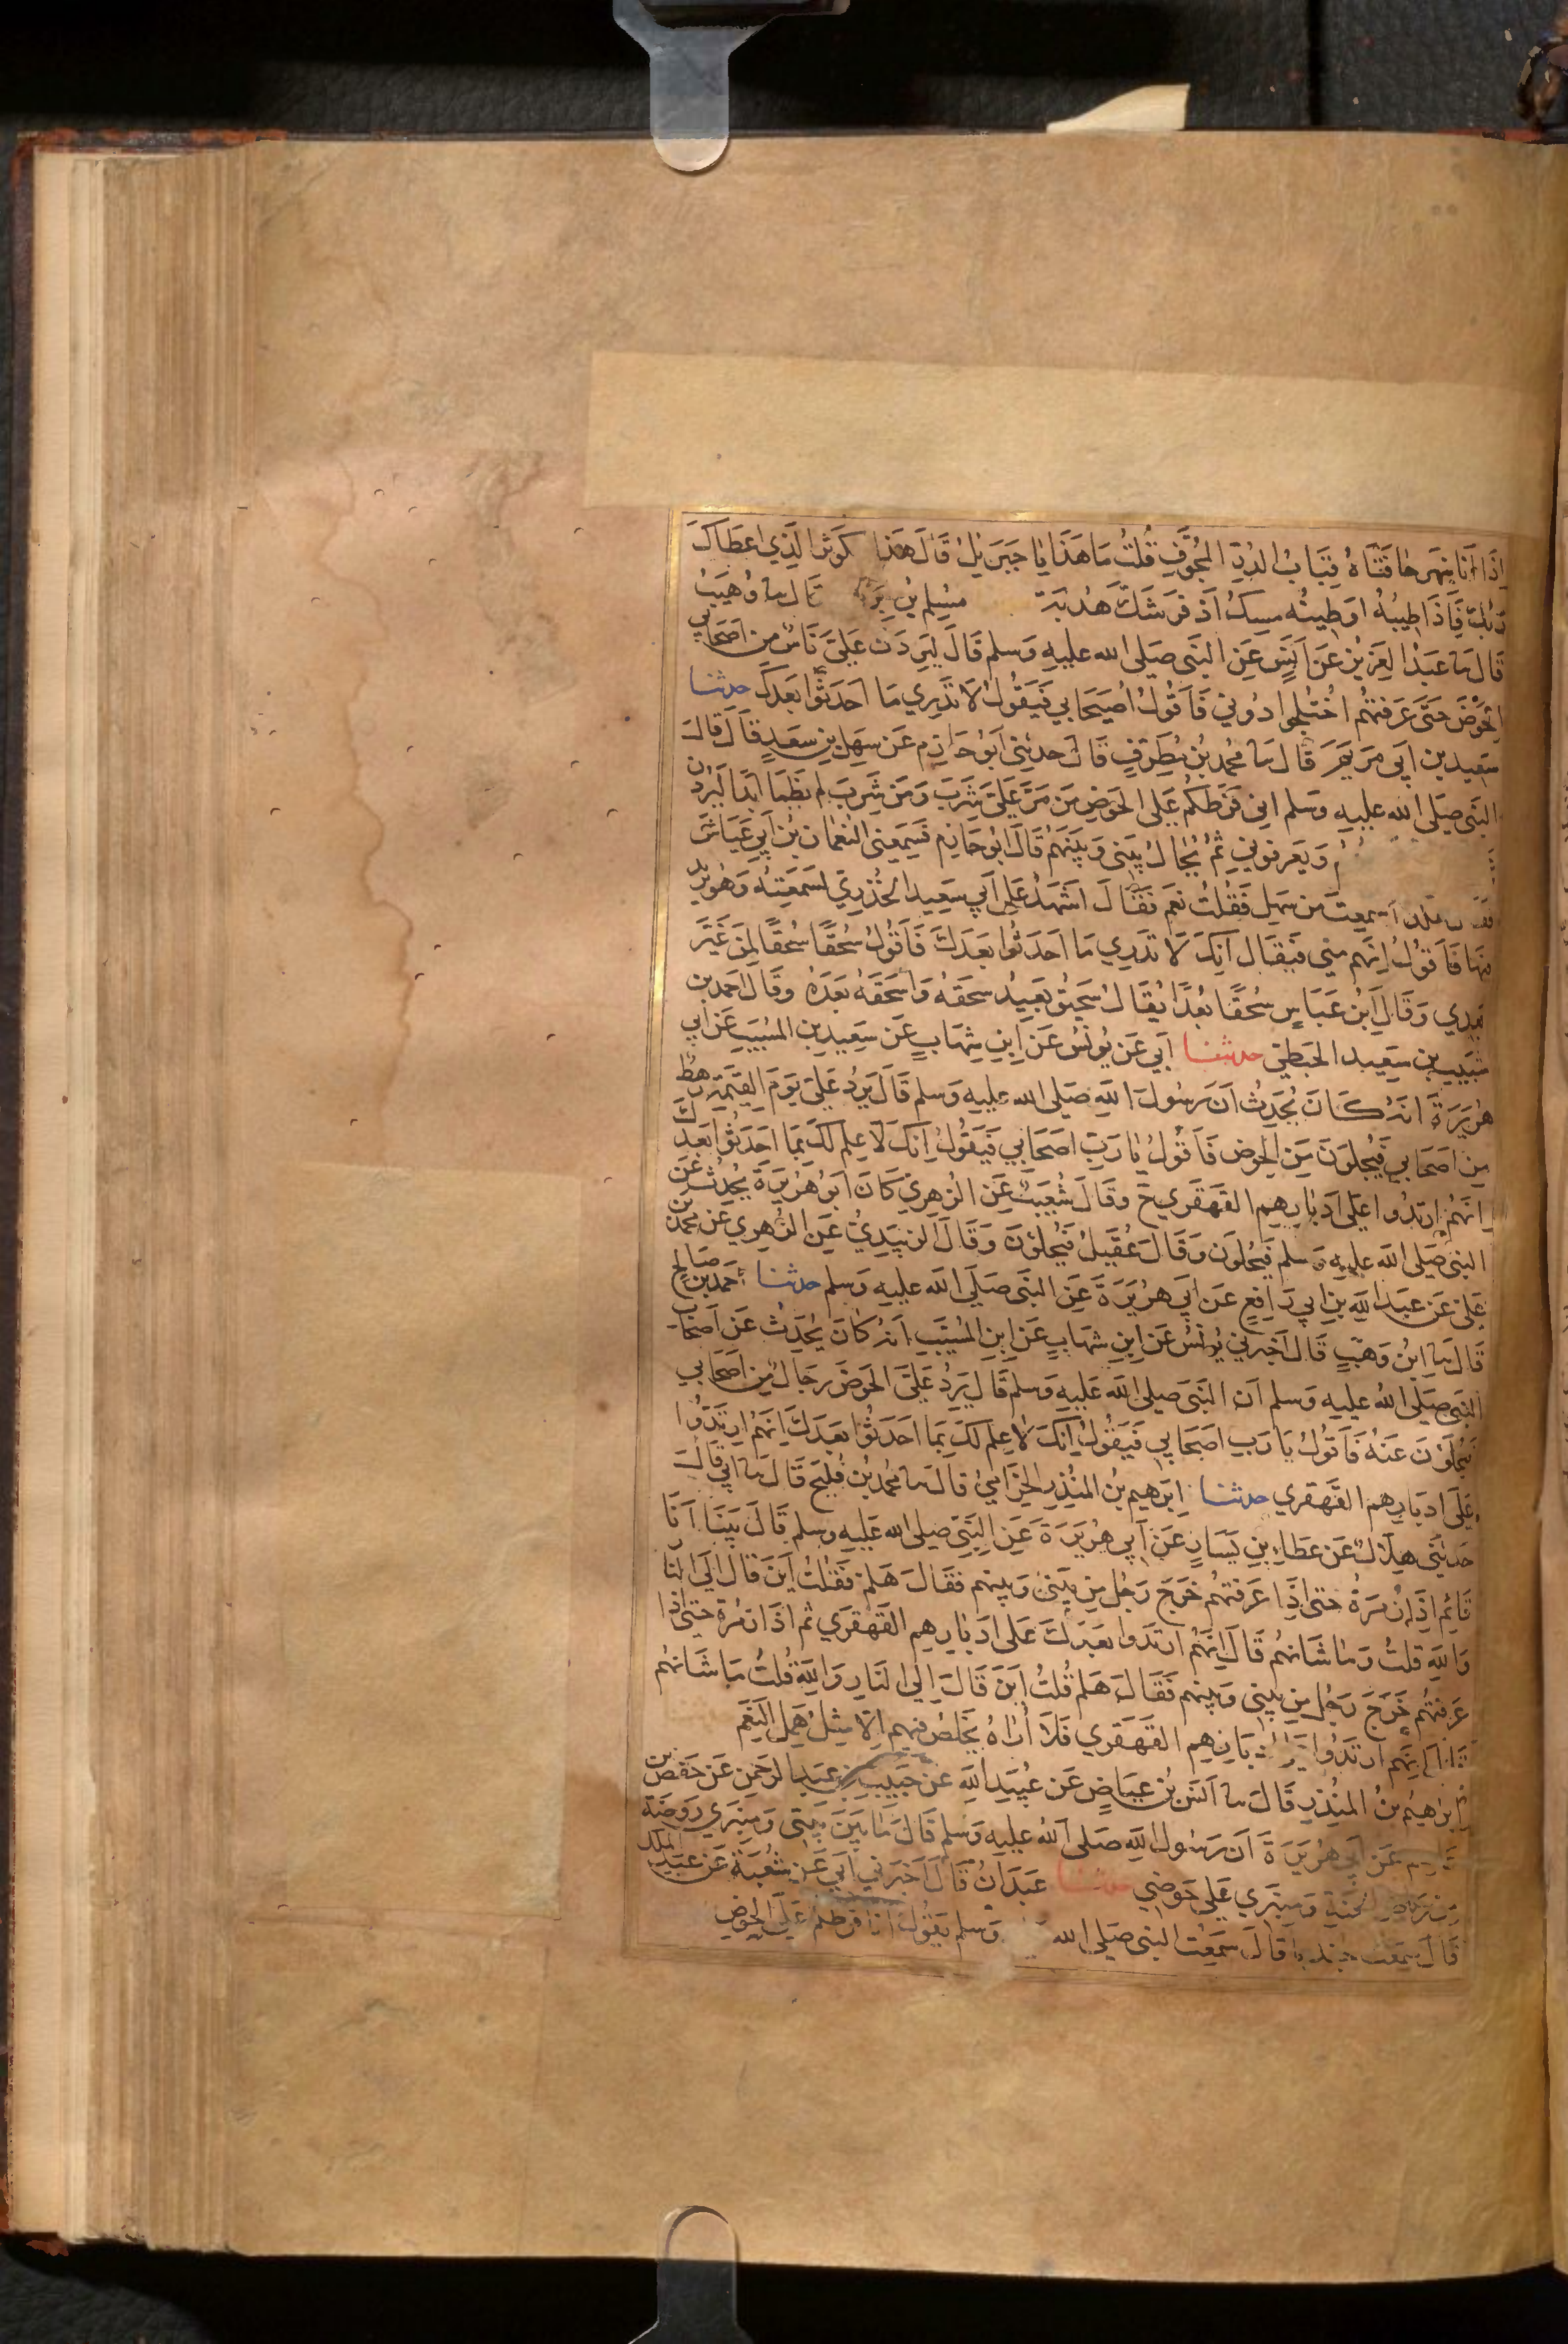 اِذَا اَنَا بِنَهَرٍ حَافَتَاهُ قِبَابُ الدُرِّ المُجَوَّفِ قُلتُ مَا هَذَا يَا جبرَيلُ قَالَ هَذا كَوثرُ الَّذِي اعطَاكَ
رَبُكَ فَاِذَا طِيبُهُ او طِينُه مِسكٌ اَذفَر شَكَّ هُدبَة مُسِلم بنُ قَالَ سا وُهَيبٌ
قَالَ سا عَبدُ العَزيز عَن اَنَسٍ عَنِ النَبِي صَلى الله عليهِ وَسلم قَالَ لَيَرِدَنَّ عَلَيَّ نَاسٌ مِن اصحَابي
الحَوضَ حَتَّى عَرَفتُهُم اختُلجوا دُوني فَاَقولُ اُصَيحَابي فَيَقُولُ لَا تَدرِي مَا احدَثُوا بَعدَكَ حدثنا
سَعِيد بن اَبي مَريَمَ قَالَ سا محمد بنُ مُطَرِفٍ قَالَ حدثني اَبو حَازِم عَن سَهلِ بنِ سَعدٍ قَالَ قالَ
النَبي صَلى الله عليهِ وَسلم اني فَرَطكُم عَلى الحَوضِ مَن مَرَّ عَلَيَّ شَرِبَ وَمَن شَرِبَ لم يَظمَا اَبَدًا لَيَرِدَن
وَيَعرفونِي ثُمَّ يُحَالُ بَيني وَبَينَهُم قَالَ ابُو حَازِم فَسَمِعني النُعمَان بنُ اَبي عَيَاش
سمِعتَ مِن سَهلٍ فَقُلتُ نعَم فَقَالَ اَشهَدُ عَلى اَبي سَعِيد الخُدرِي لَسَمعتُهُ وَهُو يَزيد
فيهَا فَاَقولُ اِنَهُم مِني فَيقَال اِنَكَ لَا تَدرِي مَا احدَثُوا بَعدَكَ فَاَقُولُ سُحقًا سُحقًا لِمَن غَيَّر
بَعدِي وَقَالَ ابنُ عَبَاسٍ سُحقًا بُعدًا يُقَالُ سَحيقٌ بَعِيدٌ سحقَهُ وَاسحَقَهُ بَعَّدَهُ وقَالَ احمَد بن
شَبيبِ بن سَعِيد الحَبطِي حدثنا اَبي عَن يُونسُ عَن اِبنِ شِهَابٍ عَن سَعِيدِ بن المسَيَبِ عَن ابي
هُرَيرَةَ انهُ كَانَ يُحَدِثُ اَنَ رَسُولَ اللهِ صَلى الله عليهِ وسلم قَالَ يَرِدُ عَلَيَّ يَومَ القِيمَةِ رَهطٌ
مِن اصحَابي فَيُجلونَ عَنِ الحوض فَاَقُولُ يَا رَبِ اصحَابي فَيَقُولُ اِنَكَ لَا عِلم لَكَ بمَا احدَثُوا بَعدَكَ
اِنَهُم ارتَدُوا عَلَى اَدبَارِهِم القَهقَرِي ح وقَالَ شُعَيبٌ عَن الزهرِي كَانَ ابُو هُرَيرَةَ يُحَدِثُ عَنِ
النبي صَلى الله عليهِ وَسلم فَيُجلونَ وَقَالَ عُقَيلٌ فَيُحلؤنَ وَقَالَ الزبَيدِي عَنِ الزُهرِي عَن محمد بن
عَلي عَن عبَيدِ اللَّهِ بن ابي رَافِعٍ عَن اَبي هُرَيرَةَ عَنِ النَبي صَلى الله عليهِ وَسلم حدثنا احمد بن صَالحٍ
قَالَ سا ابنُ وَهبٍ قَالَ اَخبرنَي يُونسُ عَن ابنِ شهَابٍ عَنِ ابنِ المسَيَّبِ اَنهُ كَانَ يُحَدِثُ عَن اَصحَاب
النَبي صَلى الله عليهِ وسلم اَن النَبي صلى الله عليهِ وَسلم قَالَ يَرِدُ عَلَيَّ الحَوضَ رِجَالٌ مِن اصحَابي
فَيُجلَونَ عَنهُ فَاَقُولُ يَا رَبِ اصحَابي فَيَقُولُ اِنَكَ لَا عِلم لَكَ بمَا احدَثُوا بَعدَكَ اِنَهُم ارتَدُوا
عَلَى ادبَارِهِم القَهقري حدثنا ابرَهيم بنُ المُنذِرِ الحِزَامِي قَالَ سا محمد بنُ فُلَيحٍ قَالَ سا ابي قالَ
حَدثَني هِلَالٌ عَن عَطَاءِ بنِ يَسَارٍ عَن اَبي هُرَيرَةَ عَنِ النَبِي صلى الله عَليهِ وسلم قَالَ بَينَا اَنَا
قَائِم اِذَا زُمرَةٌ حتى اِذَا عَرَفتهُم خَرَجَ رَجُل مِن بَيني وَبينهم فَقَالَ هَلم فَقُلتُ اَينَ قَالَ اِلَى النَار
وَاللهِ قُلتُ وَمَا شَانهُم قَالَ اِنَهُم ارتَدوا بَعدَكَ عَلى ادبَارِهِم القَهقَري ثم اذَا زمرَة حتى اِذَا
عَرَفتُهُم خَرَجَ رَجُل مِن بَيني وَبينهم فَقَالَ هَلم قُلتُ اَينَ قَالَ اِلَى النَارِ وَاللهِ قُلتُ مَا شَانهُم
قَالَ اِنَهم ارتَدُوا بَارِهِم القَهقَري فَلَا اُرَاهُ يَخلصُ فيهِم اِلَّا مِثلُ هَمل النعَم
ابرَاهِيمُ بنُ المُنذِرِ قَالَ سا اَنسُ بنُ عِيَاضٍ عَن عُبَيدِ اللهِ عن خُبَيبِ بن عَبدِ الرحمنِ عَن حَفصِ بن
عَاصم عَن اَبي هُرَيرَةَ اَن رَسُولَ اللهِ صَلى اللهُ عليهِ وَسلم قَالَ مَا بَينَ بَيتي وَمِنبَرِي رَوضَة
مِن رِيَاضِ الجَنةِ وَمِنبَرِي عَلى حَوضِي حدثنا عَبدَانُ قَالَ اَخبَرَني اَبي عَن شُعبَةَ عَن عَبدِ الملك
قَالَ سَمعتُ جندبا قَالَ سَمِعتُ النَبي صَلى الله وَسلم يَقُولُ انَا فَرَطكُم عَلَى الحَوضِ